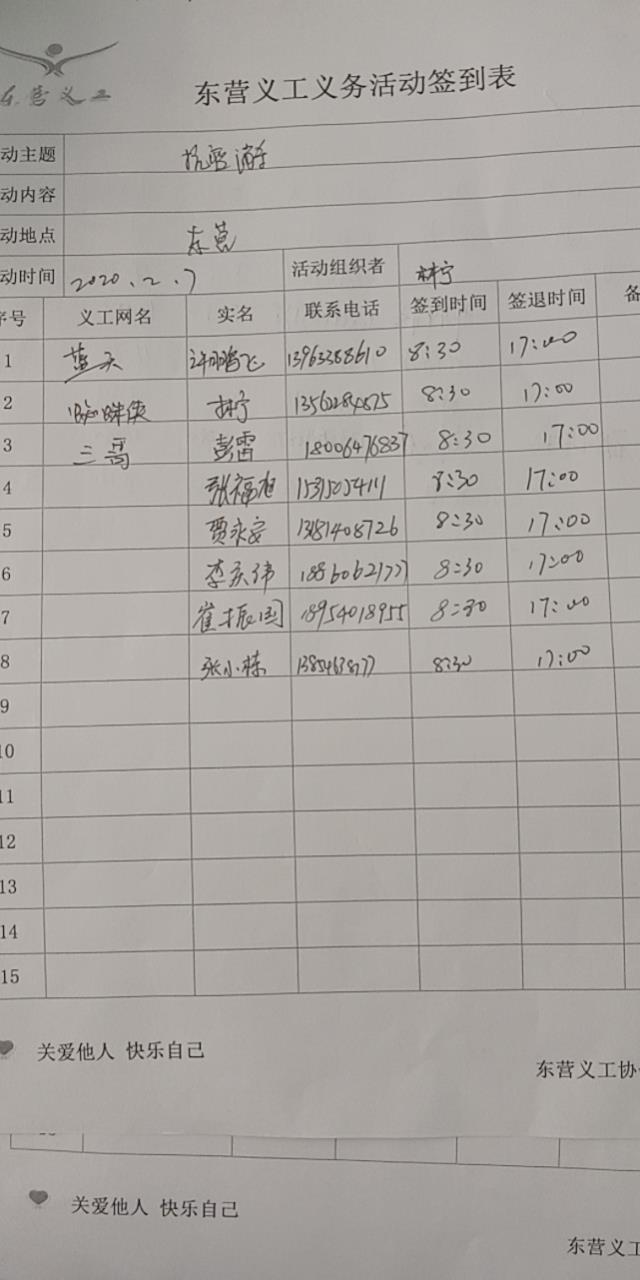 东营义工
东营义工义务活动签到表
动主题
动内容
动地点 东营
动时间 2020.2.7 活动组织者 林宁
序号 义工网名 实名 联系电话 签到时间 签退时间 备
1 蓝天 许鹏飞 13963388610 8:30 17:00
2 蜘蛛侠 林宁 13562284875 8:30 17:00
3 三哥 彭雷 18006476837 8:30 17:00
4 张福旭 8:30 17:00
5 贾永安 8:30 17:00
6 李庆伟 8:30 17:00
7 崔振国 18954018955 8:30 17:00
8 张小栋 8:30 17:00
9
10
11
12
13
14
15
关爱他人 快乐自己
东营义工协
关爱他人 快乐自己
东营义工